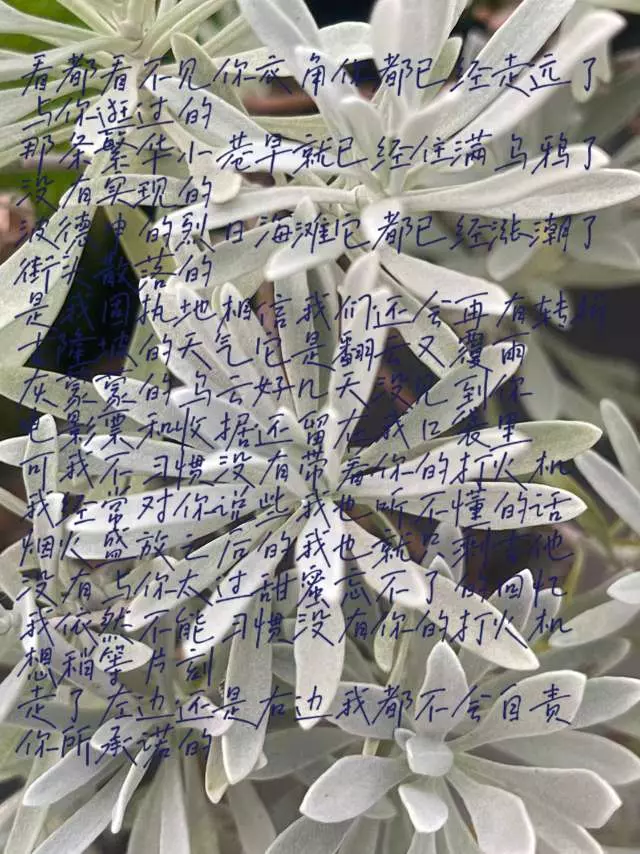 看都看不见你衣角你都已经走远了
与你逛过的
那条繁华小巷早就已经住满乌鸦了
没有实现的
波德申的烈日海滩它都已经涨潮了
街头散落的
是我固执地相信我们还会再有转折
吉隆坡的天气它是翻云又覆雨
灰蒙蒙的乌云好几天没见到你
电影票和收据还留在我口袋里
可我不习惯没有带着你的打火机
我经常对你说些我也听不懂的话
烟火盛放之后的我也就只剩吉他
没有与你太过甜蜜忘不了的回忆
我依然不能习惯没有你的打火机
想稍等片刻
走了左边还是右边我都不会自责
你所承诺的